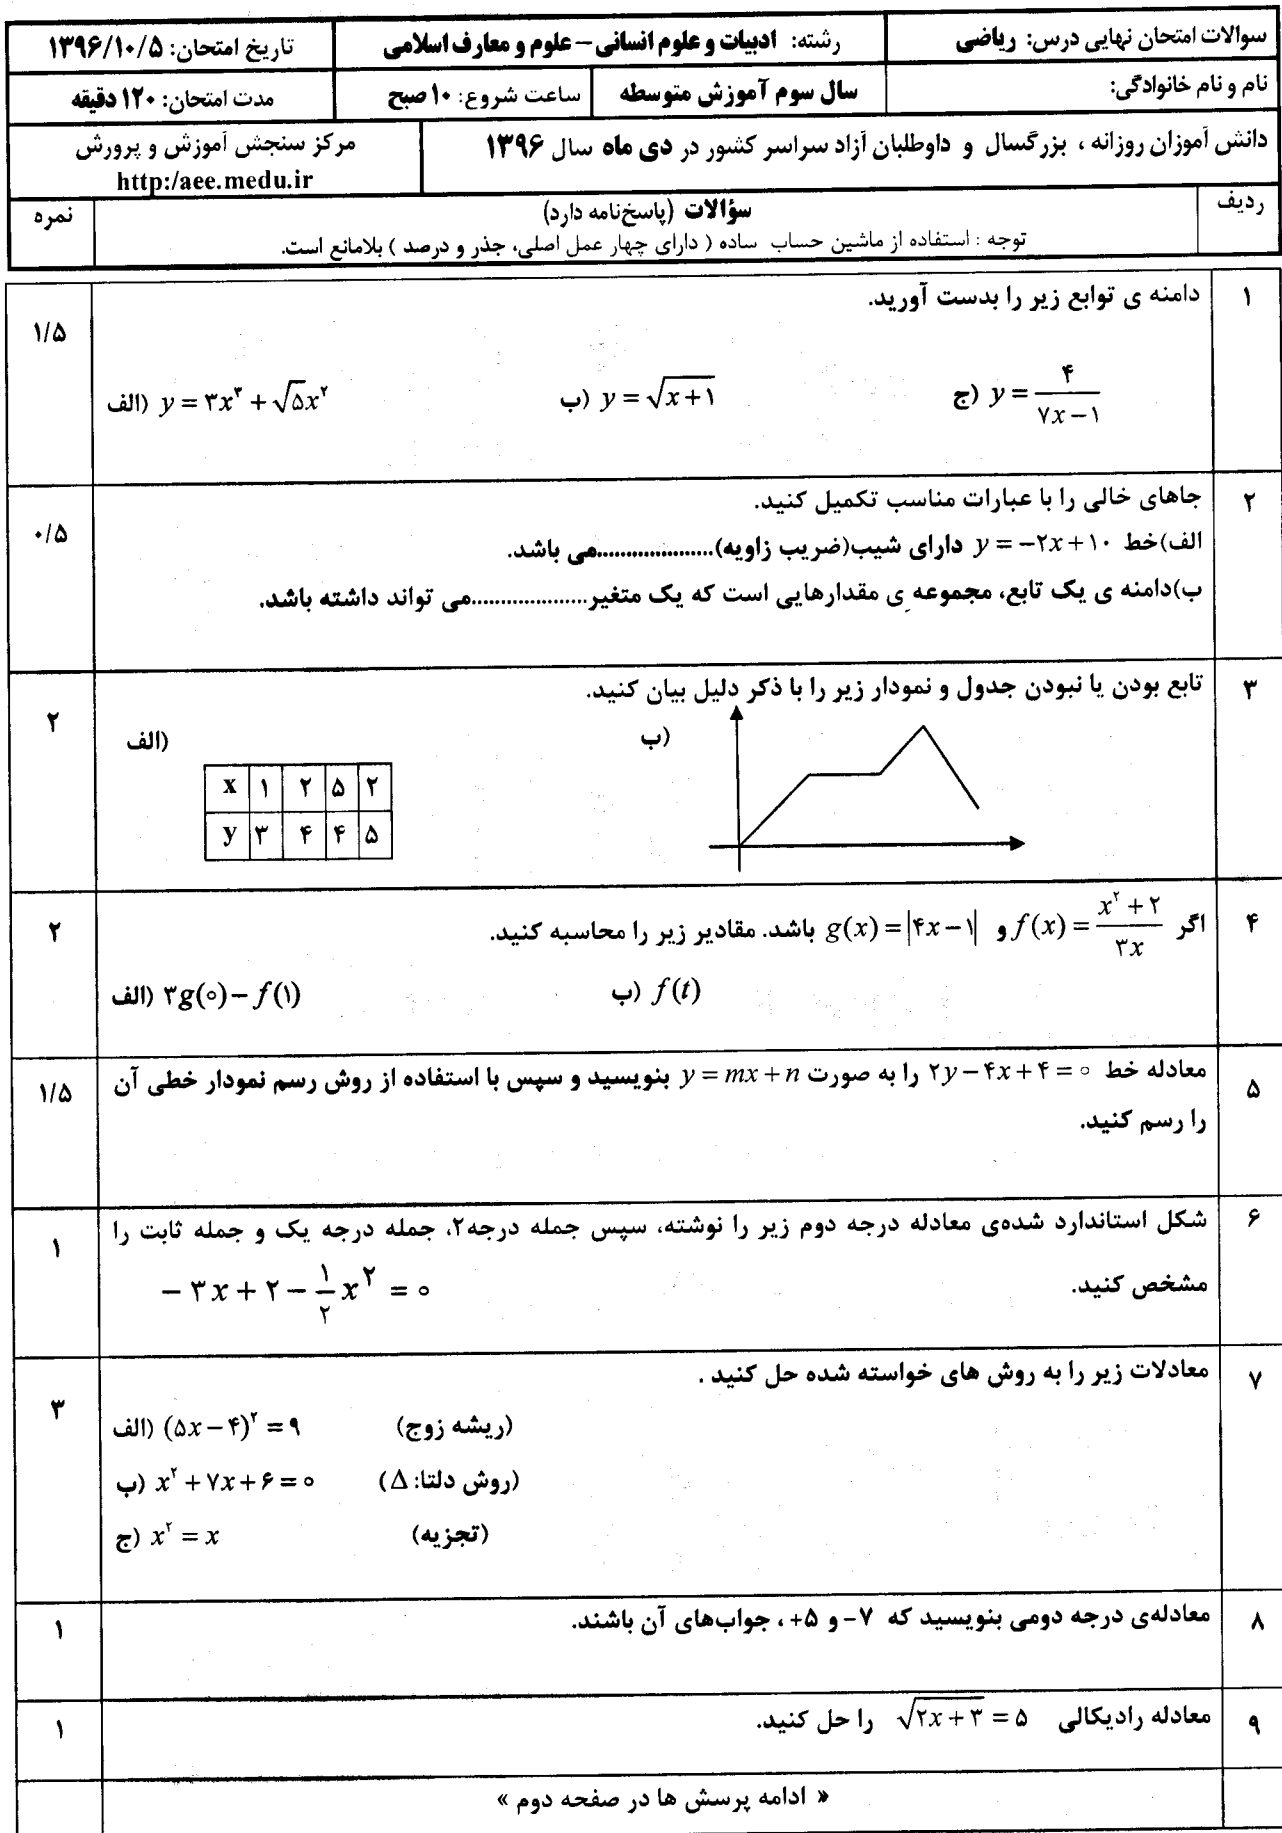 سوالات امتحان نهایی درس: ریاضی
رشته: ادبیات و علوم انسانی – علوم و معارف اسلامی
تاریخ امتحان: ۱۳۹۶/۱۰/۵
نام و نام خانوادگی:
سال سوم آموزش متوسطه
ساعت شروع: ۱۰ صبح
مدت امتحان: ۱۲۰ دقیقه
دانش آموزان روزانه ، بزرگسال و داوطلبان آزاد سراسر کشور در دی ماه سال ۱۳۹۶
مرکز سنجش آموزش و پرورش
http:/aee.medu.ir
ردیف
سؤالات (پاسخ‌نامه دارد)
نمره
توجه : استفاده از ماشین حساب ساده ( دارای چهار عمل اصلی، جذر و درصد ) بلامانع است.
۱
دامنه ی توابع زیر را بدست آورید.
۱/۵
الف) y = ۳x³ + √۵x²
ب) y = √(x+۱)
ج) y = ۴/(۷x−۱)
۲
جاهای خالی را با عبارات مناسب تکمیل کنید.
۰/۵
الف)خط y = −۲x + ۱۰ دارای شیب(ضریب زاویه)....................می باشد.
ب)دامنه ی یک تابع، مجموعه ی مقدارهایی است که یک متغیر....................می تواند داشته باشد.
۳
تابع بودن یا نبودن جدول و نمودار زیر را با ذکر دلیل بیان کنید.
۲
الف)
ب)
x ۱ ۲ ۵ ۲
y ۳ ۴ ۴ ۵
۴
اگر f(x) = (x²+۲)/۳x و g(x) = |۴x−۱| باشد. مقادیر زیر را محاسبه کنید.
۲
الف) ۳g(۰) − f(۱)
ب) f(t)
۵
معادله خط ۲y − ۴x + ۴ = ۰ را به صورت y = mx + n بنویسید و سپس با استفاده از روش رسم نمودار خطی آن
۱/۵
را رسم کنید.
۶
شکل استاندارد شده‌ی معادله درجه دوم زیر را نوشته، سپس جمله درجه۲، جمله درجه یک و جمله ثابت را
۱
مشخص کنید.
−۳x + ۲ − ۱/۲ x² = ۰
۷
معادلات زیر را به روش های خواسته شده حل کنید .
۳
الف) (۵x − ۴)² = ۹ (ریشه زوج)
ب) x² + ۷x + ۶ = ۰ (روش دلتا: Δ)
ج) x² = x (تجزیه)
۸
معادله‌ی درجه دومی بنویسید که ۷- و ۵+ ، جواب‌های آن باشند.
۱
۹
معادله رادیکالی √(۲x+۳) = ۵ را حل کنید.
۱
« ادامه پرسش ها در صفحه دوم »